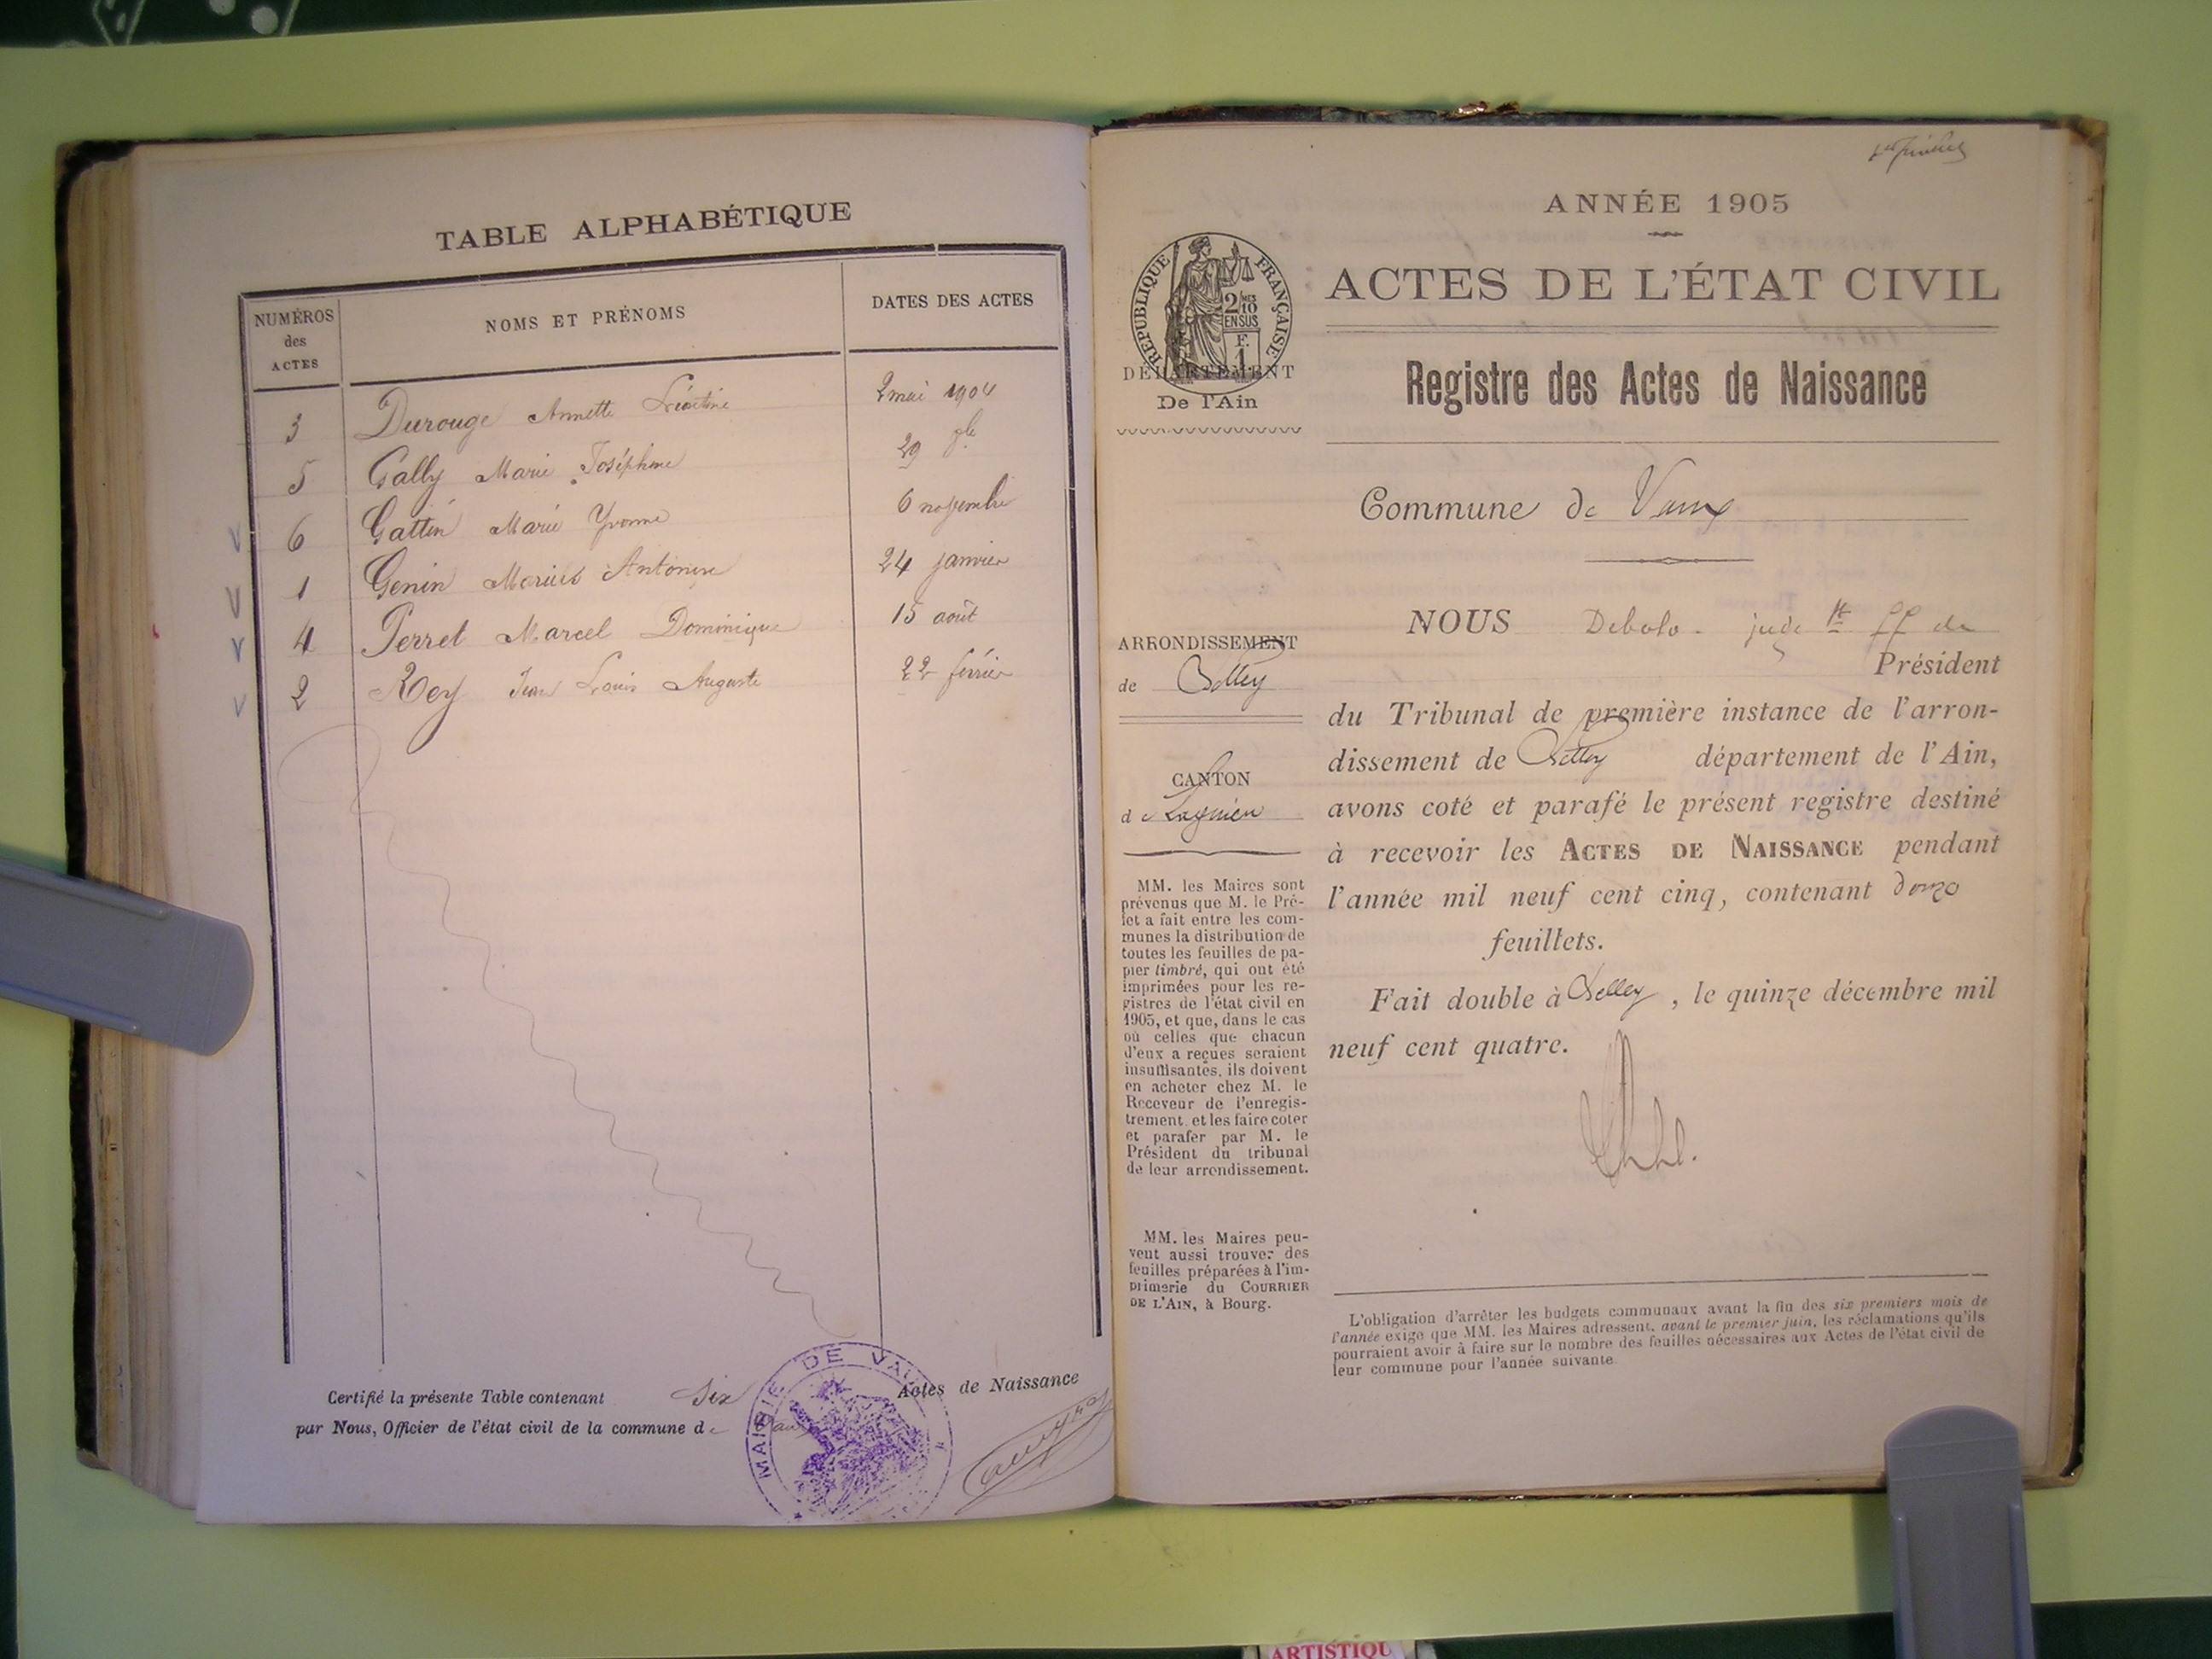 TABLE ALPHABÉTIQUE
NUMÉROS des ACTES NOMS ET PRÉNOMS DATES DES ACTES
3 Durouge Annette Léontine 2 mai 1904
5 Gally Marie Joséphine 29 8bre
6 Gattin Marie Yvonne 6 novembre
1 Genin Marius Antonin 24 janvier
4 Perret Marcel Dominique 15 août
2 Rey Jean Louis Auguste 22 février
Certifié la présente Table contenant Six Actes de Naissance
par Nous, Officier de l'état civil de la commune de Vaux
MAIRIE DE VAUX
1er feuillet
ANNÉE 1905
ACTES DE L'ÉTAT CIVIL
RÉPUBLIQUE FRANÇAISE
2/10 EN SUS
F. 1
DÉPARTEMENT
De l'Ain
Registre des Actes de Naissance
Commune de Vaux
ARRONDISSEMENT
de Belley
CANTON
de Lagnieu
MM. les Maires sont
prévenus que M. le Pré-
fet a fait entre les com-
munes la distribution de
toutes les feuilles de pa-
pier timbré, qui ont été
imprimées pour les re-
gistres de l'état civil en
1905, et que, dans le cas
où celles que chacun
d'eux a reçues seraient
insuffisantes, ils doivent
en acheter chez M. le
Receveur de l'enregis-
trement, et les faire coter
et parafer par M. le
Président du tribunal
de leur arrondissement.
MM. les Maires peu-
vent aussi trouver des
feuilles préparées à l'im-
primerie du COURRIER
DE L'AIN, à Bourg.
NOUS Debolo juge ff de
Président
du Tribunal de première instance de l'arron-
dissement de Belley département de l'Ain,
avons coté et parafé le présent registre destiné
à recevoir les ACTES DE NAISSANCE pendant
l'année mil neuf cent cinq, contenant douze
feuillets.
Fait double à Belley, le quinze décembre mil
neuf cent quatre.
L'obligation d'arrêter les budgets communaux avant la fin des six premiers mois de
l'année exige que MM. les Maires adressent, avant le premier juin, les réclamations qu'ils
pourraient avoir à faire sur le nombre des feuilles nécessaires aux Actes de l'état civil de
leur commune pour l'année suivante.
ARTISTIQU